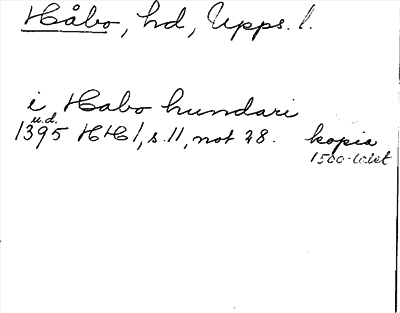 Håbo, hd, Upps. l.
i Habo hundari
u.d.
1395 HH 1, s. 11, not 28. kopia
1500-talet